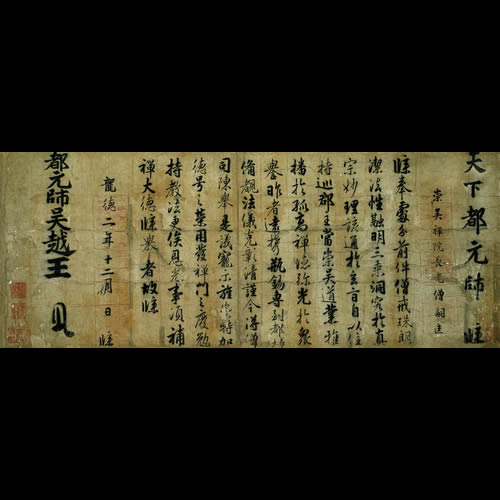 天下都元帥 牒
崇吳禪院長老僧嗣匡
牒奉處分前件僧戒珠朗
潔法性融明三乘洞究於真
宗妙理該通於玄旨自以住
持巡郡主當崇吳道業雅
播於孤高禪德弥光於衆
譽昨者遠攜瓶錫專到都
備覩法儀克彰清謹今得僧
司陳舉是議寵示旌酬特加
德号之榮用發禪門之慶勉
持教法更俟恩光事須補
禪大德牒舉者故牒
龍德二年十二月 日 牒
都元帥吳越王